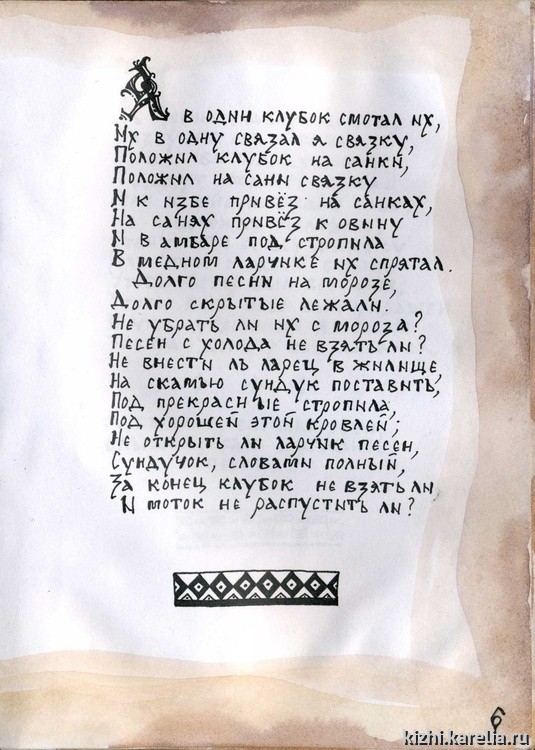 Я в один клубок смотал их,
Их в одну связал я связку,
Положил клубок на санки,
Положил на сани связку
И к избе привёз на санках,
На санях привёз к овину
И в амбаре под стропила
В медном ларчике их спрятал.
Долго песни на морозе,
Долго скрытые лежали.
Не убрать ли их с мороза?
Песен с холода не взять ли?
Не внести ль ларец в жилище,
На скамью сундук поставить,
Под прекрасные стропила,
Под хорошей этой кровлей;
Не открыть ли ларчик песен,
Сундучок, словами полный,
За конец клубок не взять ли
И моток не распустить ли?
6
kizhi.karelia.ru